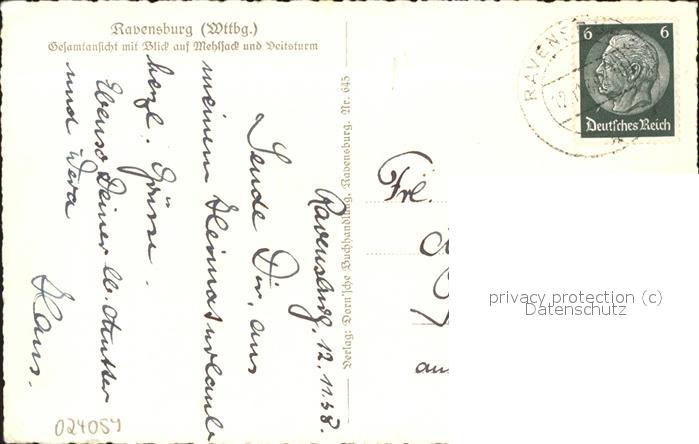 Ravensburg (Wttbg.)
Gesamtansicht mit Blick auf Mehlsack und Veitsturm
Ravensburg, 12.11.38.
Sende Dir, aus
meinem Heimaturlaub
herzl. Grüsse.
Ebenso Deiner lb. Mutter
und Vera
Hans.
024054
Verlag: Dorn'sche Buchhandlung, Ravensburg. Nr. 645
RAVENS
6 6
Deutsches Reich
Frl.
privacy protection (c)
Datenschutz